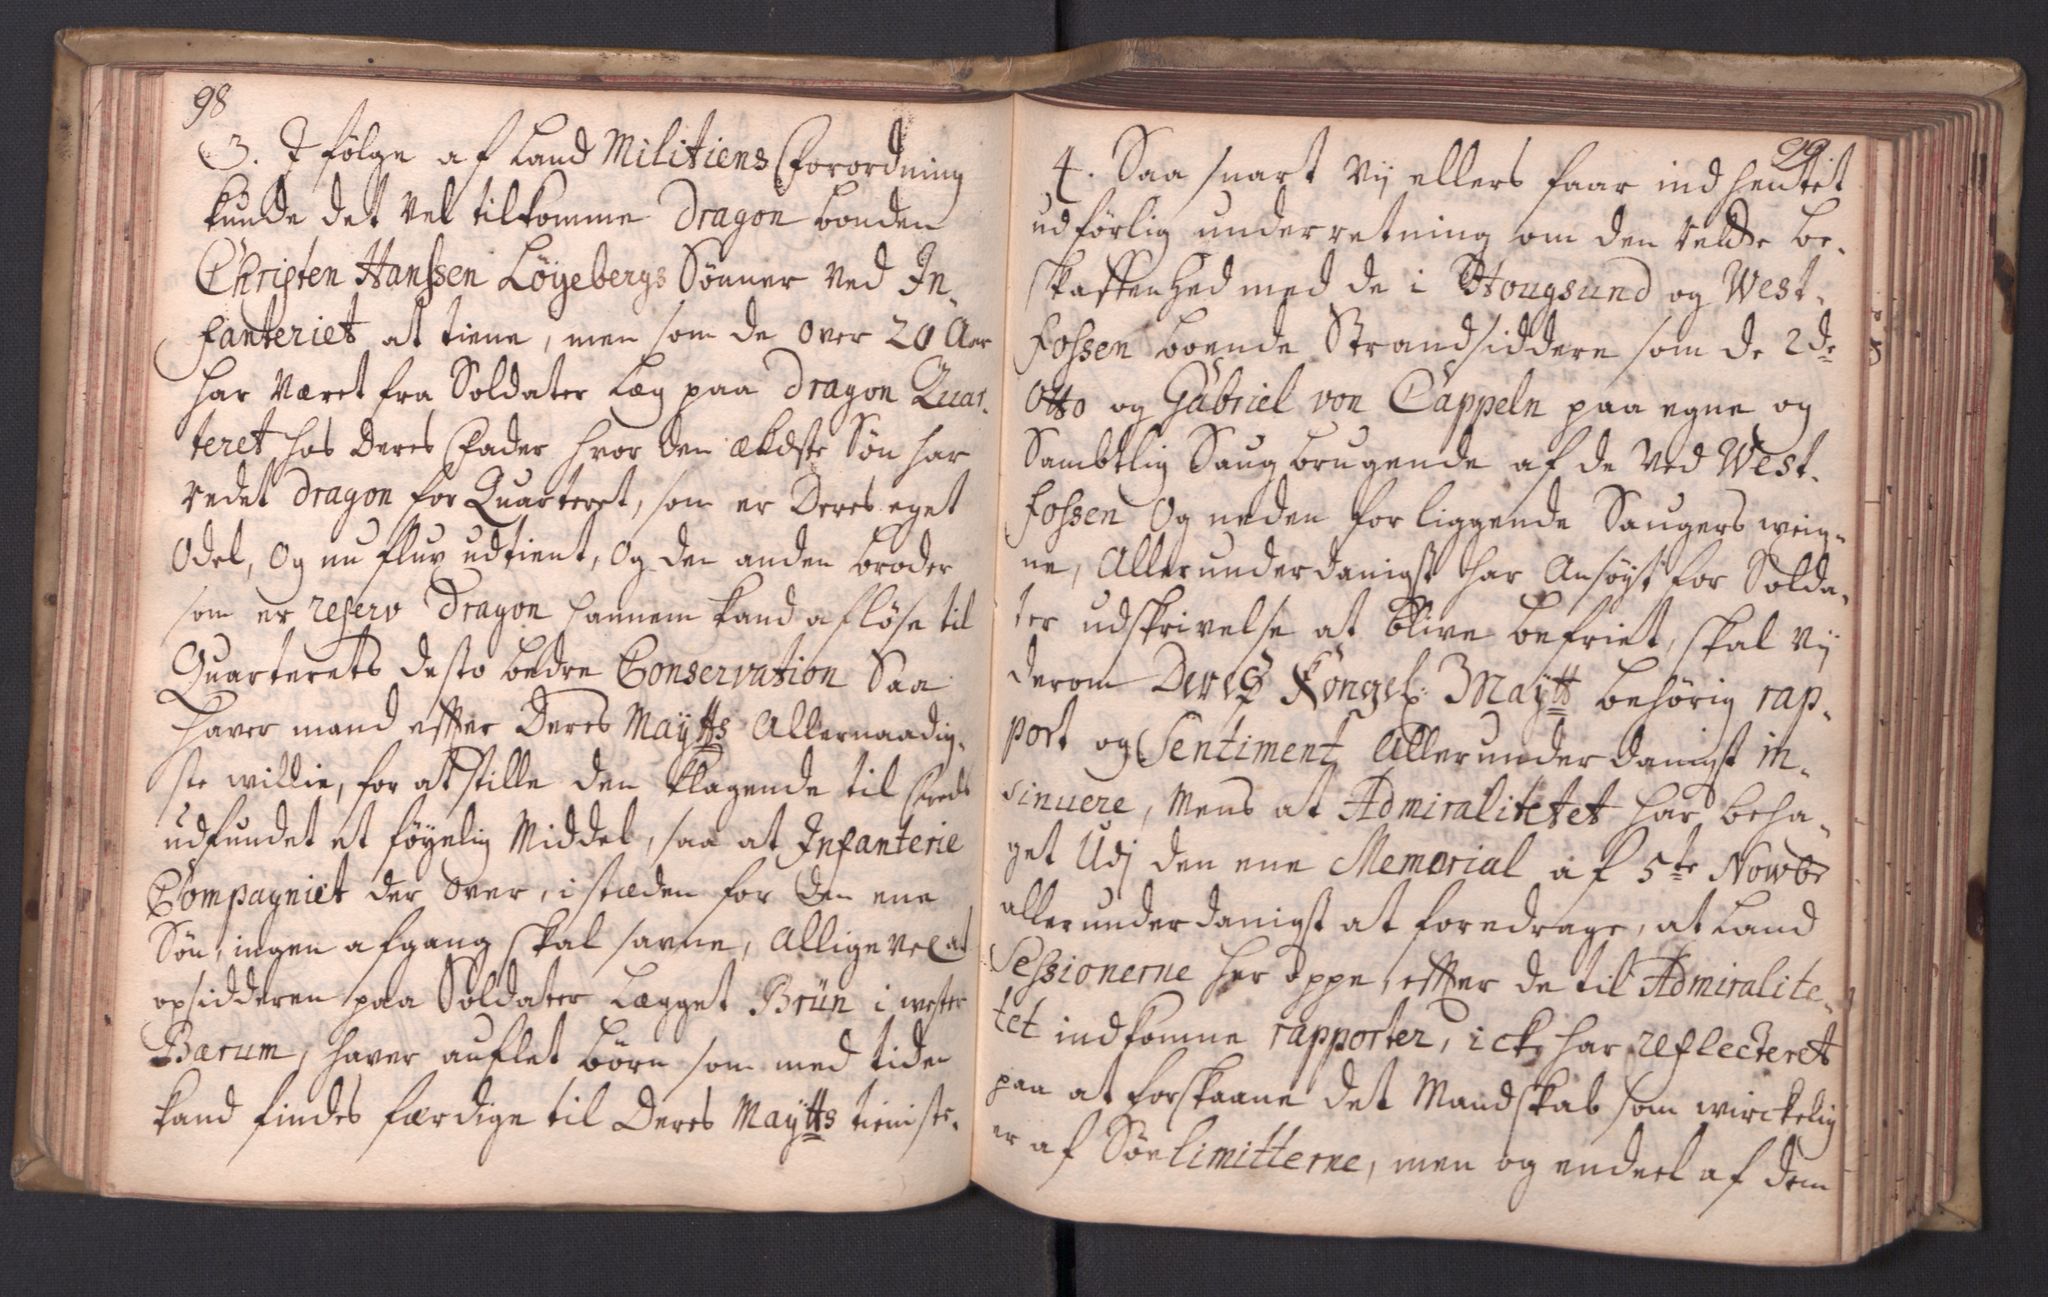 98
3. I følge af Land Militiens Forordning
kunde det vel tilkomme Dragon bonden
Christen Hanssen Løyebergs Sønner ved In-
fanteriet at tiene, men som de over 20 Aar
har været fra Soldater Læg paa Dragon Quar-
teret hos Deres Fader hvor den ældste Søn har
redet Dragon for Quarteret, som er Deres eget
Odel, Og nu flux udtient, Og den anden broder
som er reserv Dragon hannem kand afløse til
Quarterets desto bedre Conservation Saa
haver mand efter Deres Maÿtts Allernaadig-
ste willie, for at stille den klagende til freds
udfundet et føyelig Middel, saa at Infanterie
Compagniet der over, i stæden for den ene
Søn, ingen afgang skal savne, Alligevel at
opsidderen paa Soldater Lægget Brün i wester
Bærum, haver auflet børn som med tiden
kand findes færdige til Deres Maÿtts tieniste.
99
4. Saa snart Vÿ ellers faar ind hentet
udførlig underretning om den rette be-
skaffenhed med de i Hougsund og West-
fossen boende Strandsiddere som de 2de
Otto og Gabriel von Cappeln paa egne og
Sambtlig Saug brugende af de ved West-
fossen Og neden for liggende Saugers weig-
ne, Allerunderdanigst har Ansøgt for Solda-
ter udskrivelse at blive befriet, skal vÿ
derom Deres Kongel: Maÿtt behørig rap-
port og Sentiment Allerunderdanigst in-
sinuere, Mens at Admiralitetet har beha-
get Udj den ene Memorial af 5te Novbr
allerunderdanigst at foredrage, at Land
Sessionerne her oppe, efter de til Admiralite-
tet indkomne rapporter, ick har reflecteret
paa at forskaane det Mandskab som wirckelig
er af Søelimitterne, men og endeel af dem